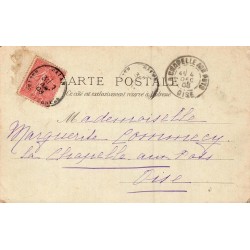 CARTE POSTALE
Ce côté est exclusivement réservé à l'adresse
LACHAPELLE AUX POTS
OISE
Mademoiselle
Marguerite Commecy
La Chapelle aux Pots
Oise